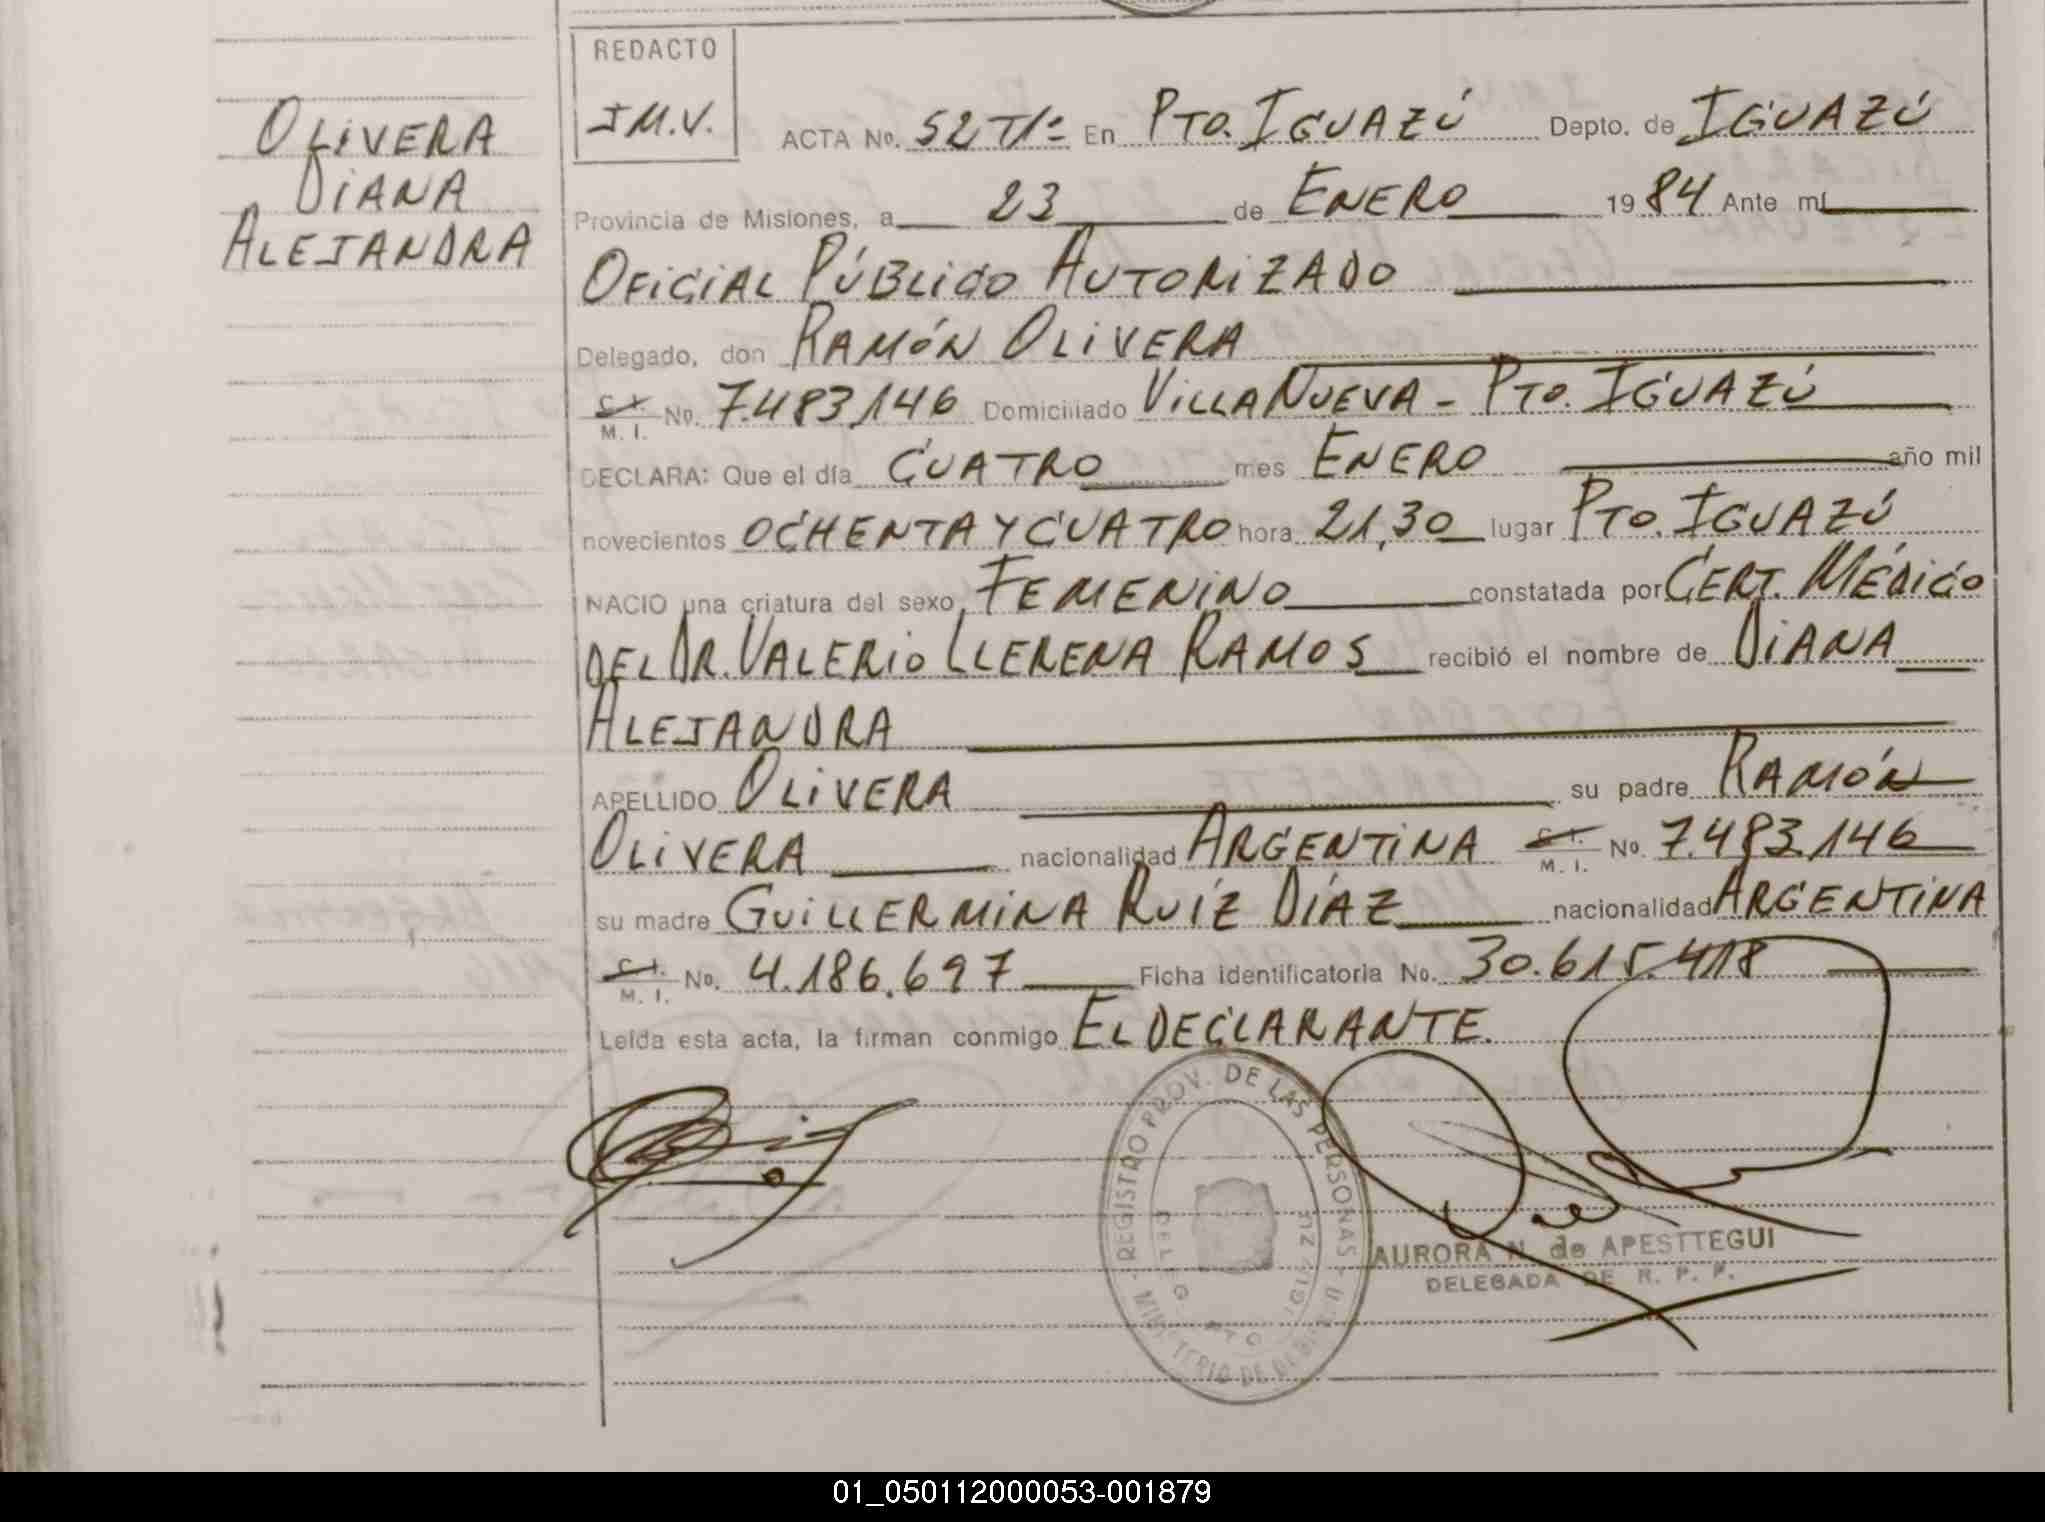 OLIVERA
DIANA
ALEJANDRA
REDACTO
J.M.V.
ACTA No. 52 Tº1º En PTO. IGUAZÚ Depto. de IGUAZÚ
Provincia de Misiones, a 23 de ENERO 1984 Ante mí
OFICIAL PÚBLICO AUTORIZADO
Delegado, don RAMÓN OLIVERA
C. I. M. I. No. 7.483.146 Domiciliado VILLA NUEVA - PTO. IGUAZÚ
DECLARA: Que el día CUATRO mes ENERO año mil
novecientos OCHENTA Y CUATRO hora 21,30 lugar PTO. IGUAZÚ
NACIO una criatura del sexo FEMENINO constatada por CERT. MÉDICO
DEL DR. VALERIO LLERENA RAMOS recibió el nombre de DIANA
ALEJANDRA
APELLIDO OLIVERA su padre RAMÓN
OLIVERA nacionalidad ARGENTINA C. I. M. I. No. 7.483.146
su madre GUILLERMINA RUÍZ DÍAZ nacionalidad ARGENTINA
C. I. M. I. No. 4.186.697 Ficha identificatoria No. 30.615.418
Leída esta acta, la firman conmigo EL DECLARANTE.
REGISTRO PROV. DE LAS PERSONAS
DELEG. PTO. IGUAZU
MINISTERIO DE
AURORA N. de APESTTEGUI
DELEGADA DE R. P. P.
01_050112000053-001879